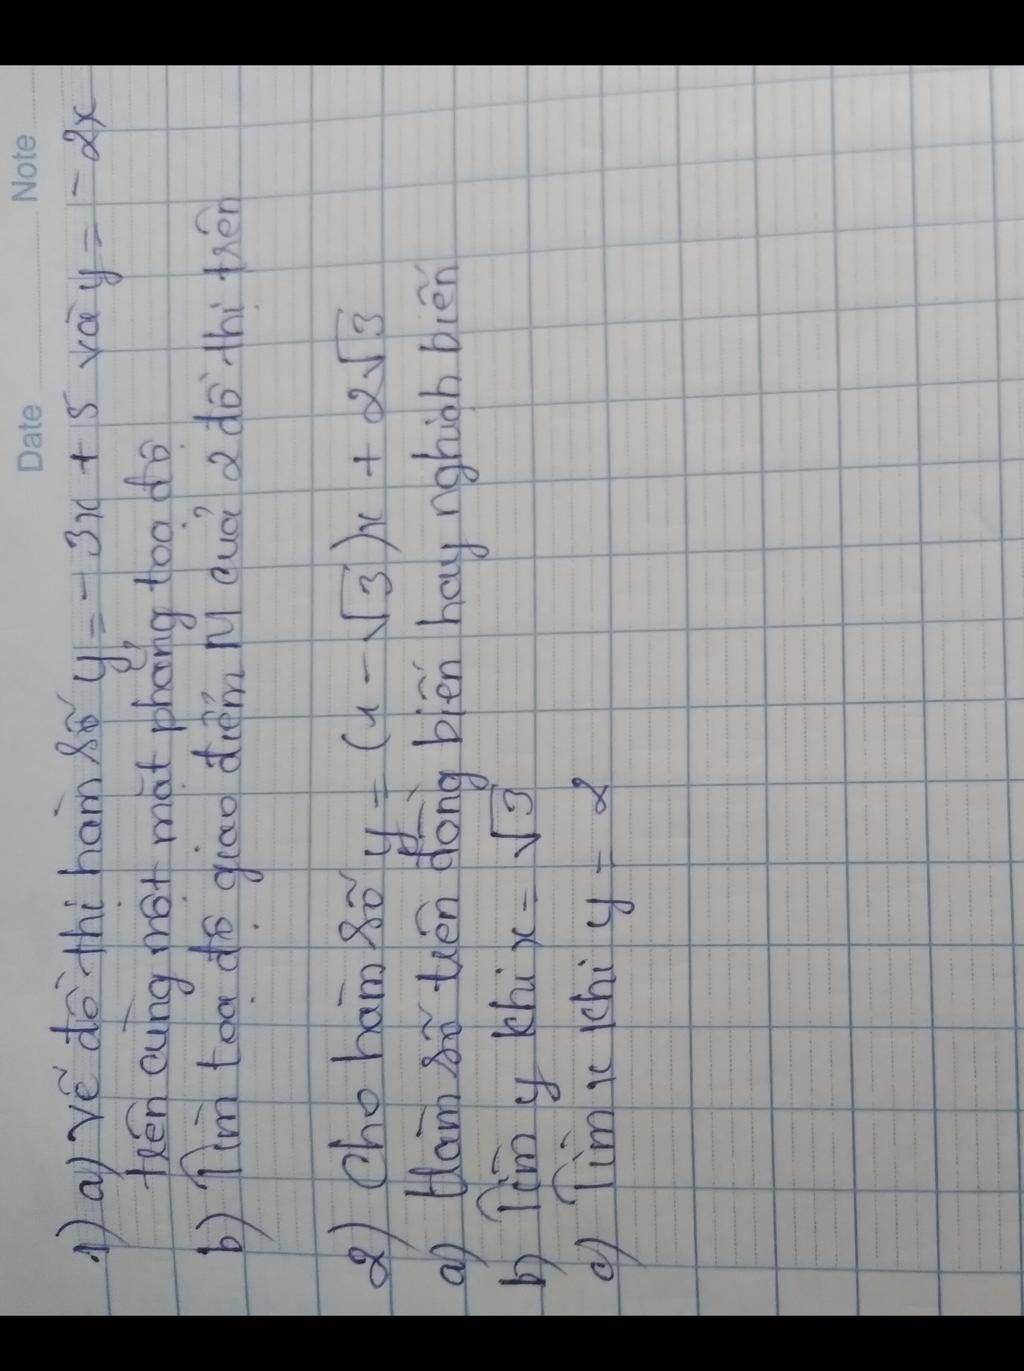 Date Note
1) a) Vẽ đồ thị hàm số y = -3x + 5 và y = -2x
trên cùng một mặt phẳng toạ độ
b) Tìm toạ độ giao điểm M của 2 đồ thị trên
2) Cho hàm số y = (1 - √3)x + 2√3
a) Hàm số trên đồng biến hay nghịch biến
b) Tìm y khi x = √3
c) Tìm x khi y = 2